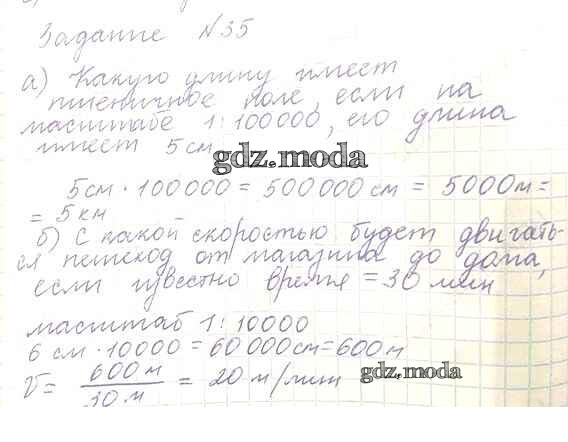 Задание №35
а) Какую длину имеет
пшеничное поле, если на
масштабе 1:100000, его длина
имеет 5 см
gdz.moda
5см · 100000 = 500000 см = 5000м =
= 5 км
б) С какой скоростью будет двигать-
ся пешеход от магазина до дома,
если известно время = 30 мин
масштаб 1:10000
6 см · 10000 = 60000см = 600м
V = 600 м / 30 м = 20 м/мин
gdz.moda